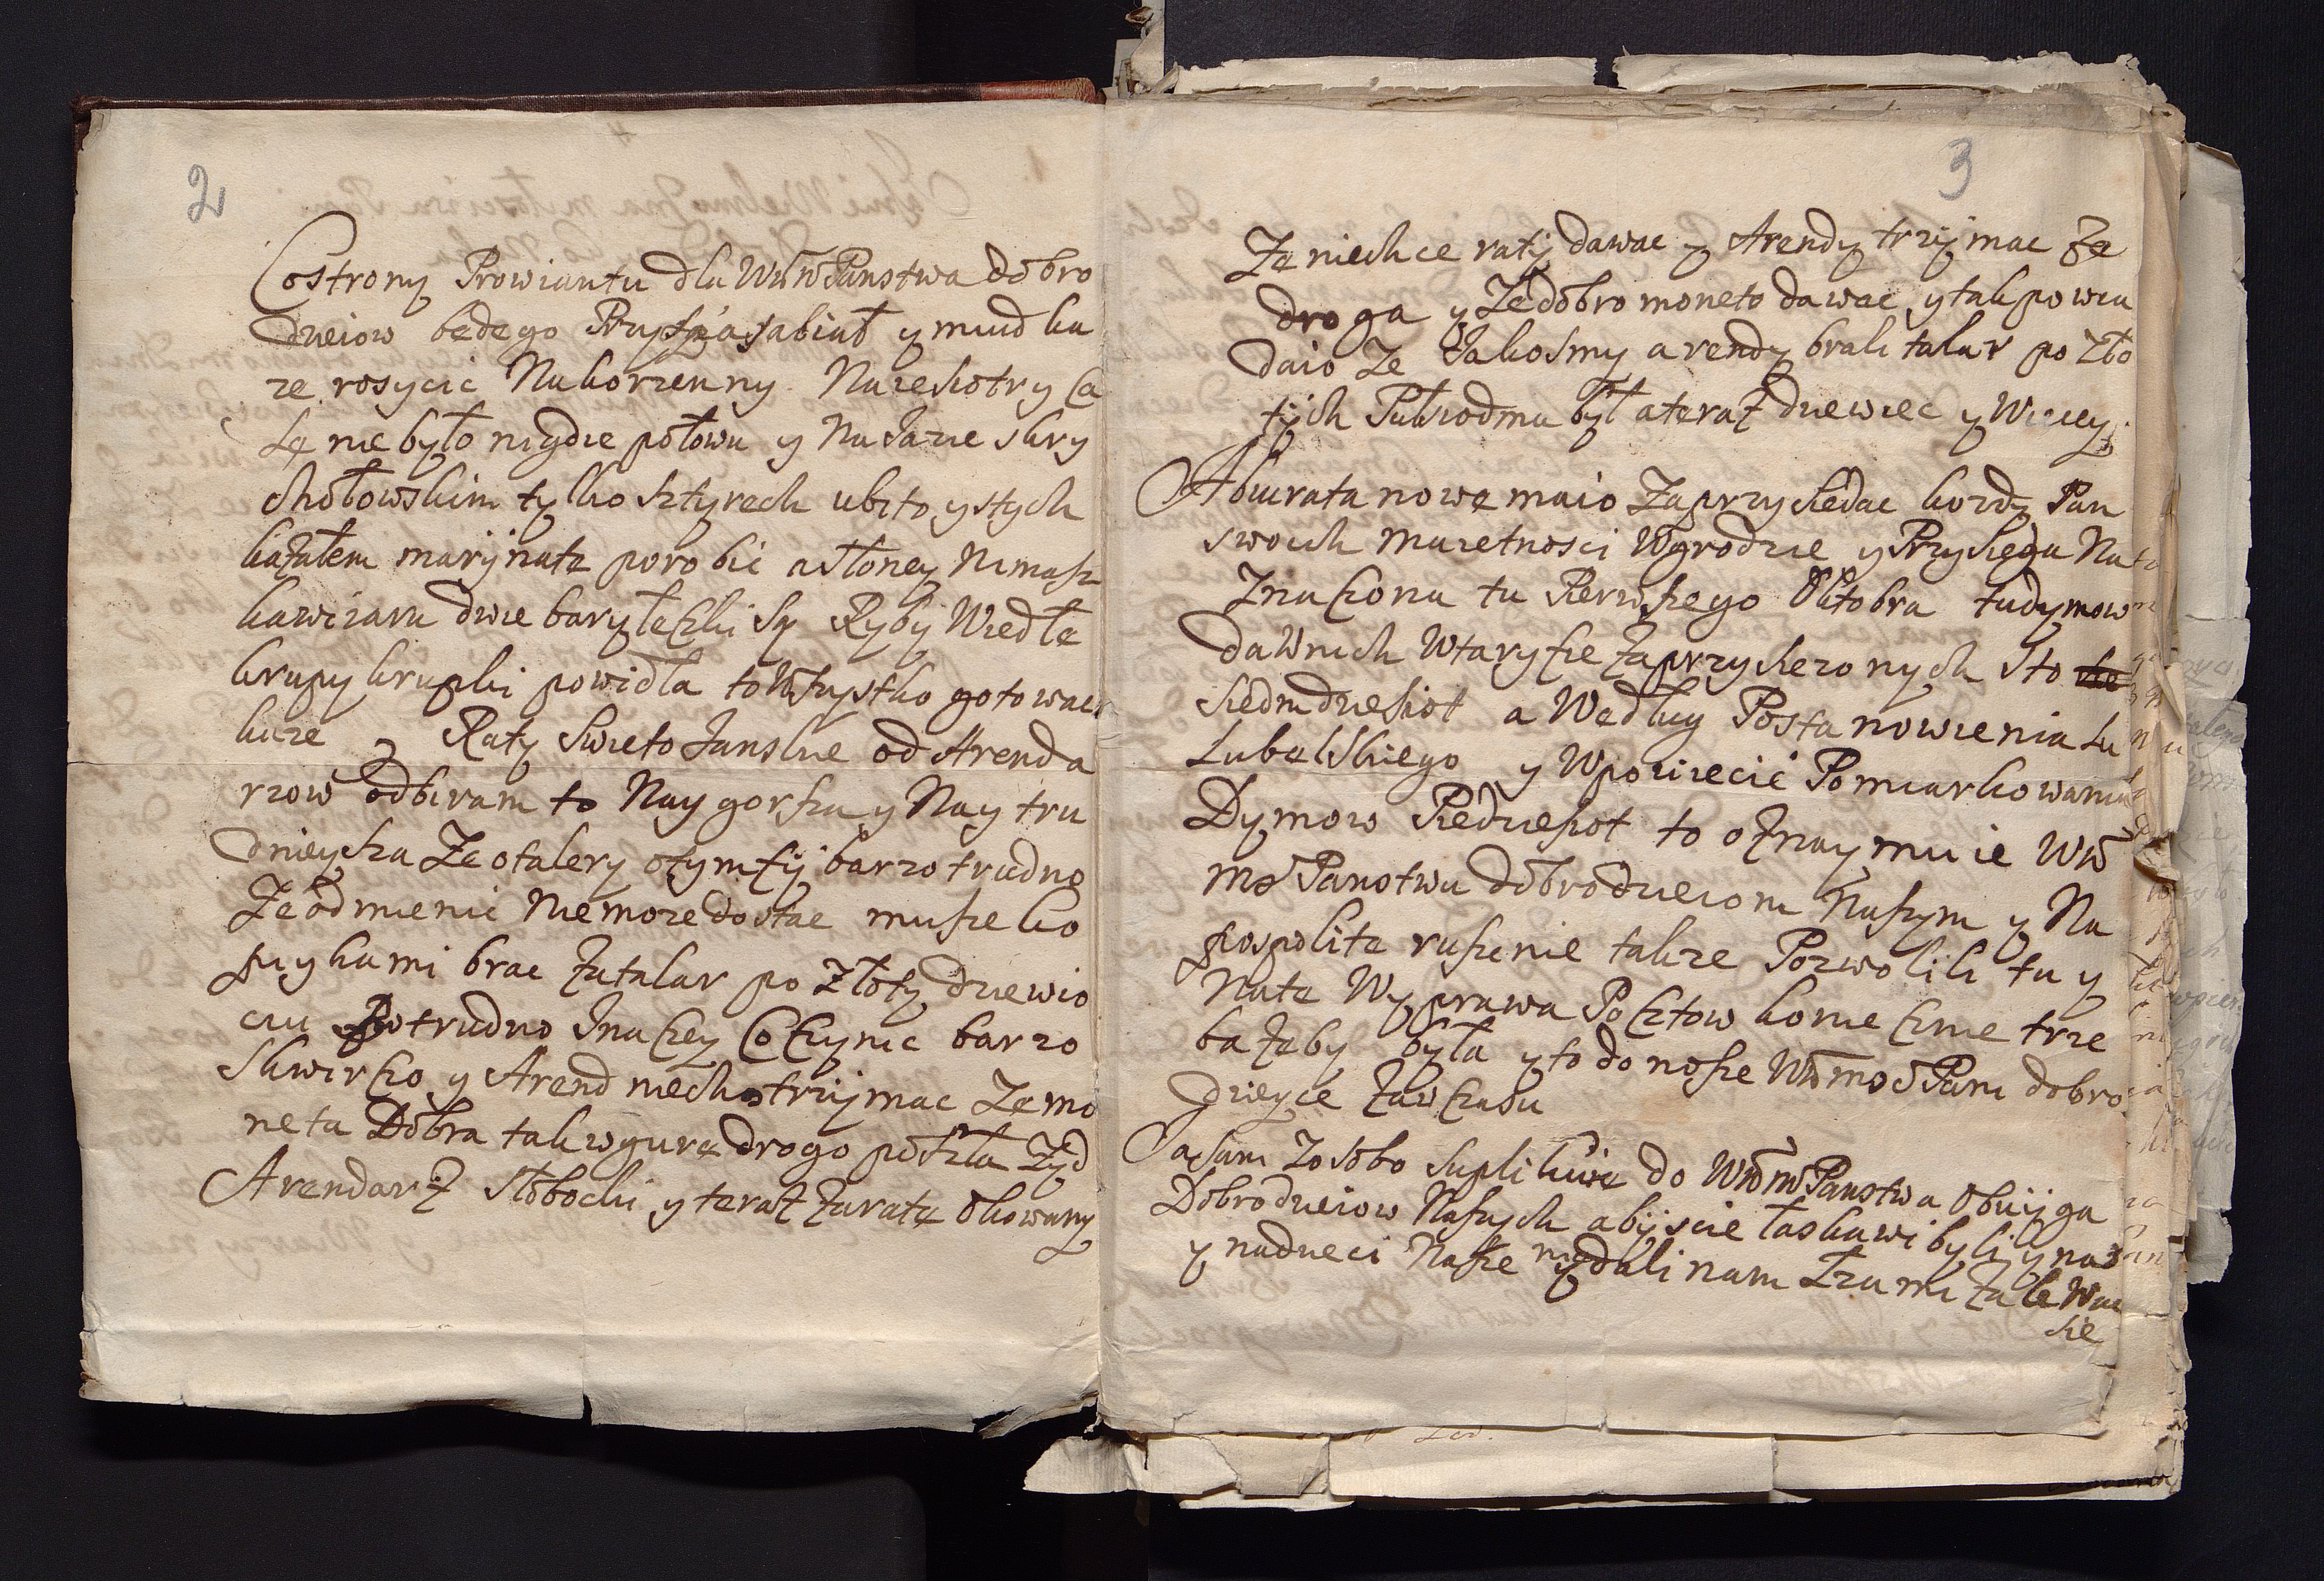 2
Co strony Prowiantu dla WMM Panstwa dobro
dzieiow bede go Przysposabiał y miud ka
ze rosycic Na korzenny. Na ieshotry Ca
łę nie było nigdzie połowu y Na Jazie skry
chołowskim tylko sztyrech ubito y stych
kazałem marÿnatę porobic a słoney Nimasz
kawiaru dwie baryłeczki Są Rybÿ Wiedłe
krupy krupki powidła to Wszystko gotowac
kaze y Ratÿ Swieto Janskie od Arenda
rzow odbiram to Nay gorsza y Nay tru
dnieysza Ze o talery o tymfÿ barzo trudno
Ze odmienic Nie moze dostac musze ko
pieykami brac Za talar po złotÿ dziewię
ciu Bo trudno Inaczey Co czynic barzo
skwirczo y Arend niechco trzÿmac Ze mo
neta Dobra tak wgurę drogo poszła Zÿd
Arendarz słobocki y teraz za ratę okowany
3
Ze niechce ratÿ dawac y Arendy trzÿmac Ze
droga y Ze dobro moneto dawac y tak powia
daio Ze Jakosmy arendy brali talar po zło
tÿch Pułsiodma bÿł a teraz dziewiec y Wiecey
Abiurata nowe maio zaprzysiedac kozdy Pan
swoich maietnosci Wgrodzie y Przysiega Na
Znaczona tu Pierwszego Oktobra tu dymow
dawnich Wtaryfie zaprzysiezonych Sto
siedmdziesiot a Wedlug Postanowienia tu
Lubelskiego y Wpowiecie Pomiarkowania
Dymow Piedziesiot to oznaymuie WM
Mo Panstwu dobrodzieiom Naszym y Na
pospolite ruszenie takze Pozwolili tu y
Nate Wyprawa Pocztow koniecznie trze
ba żeby była y to donosze WMMoś Pani dobro
dzieyce zawczasu
A sam zosobo suplikuię do WMM Panstwa Obuÿga
Dobrodzieiow Naszych abÿscie łaskawi byli y nas
y na dzieci Nasze niedali nam Łzami zalewac
sie